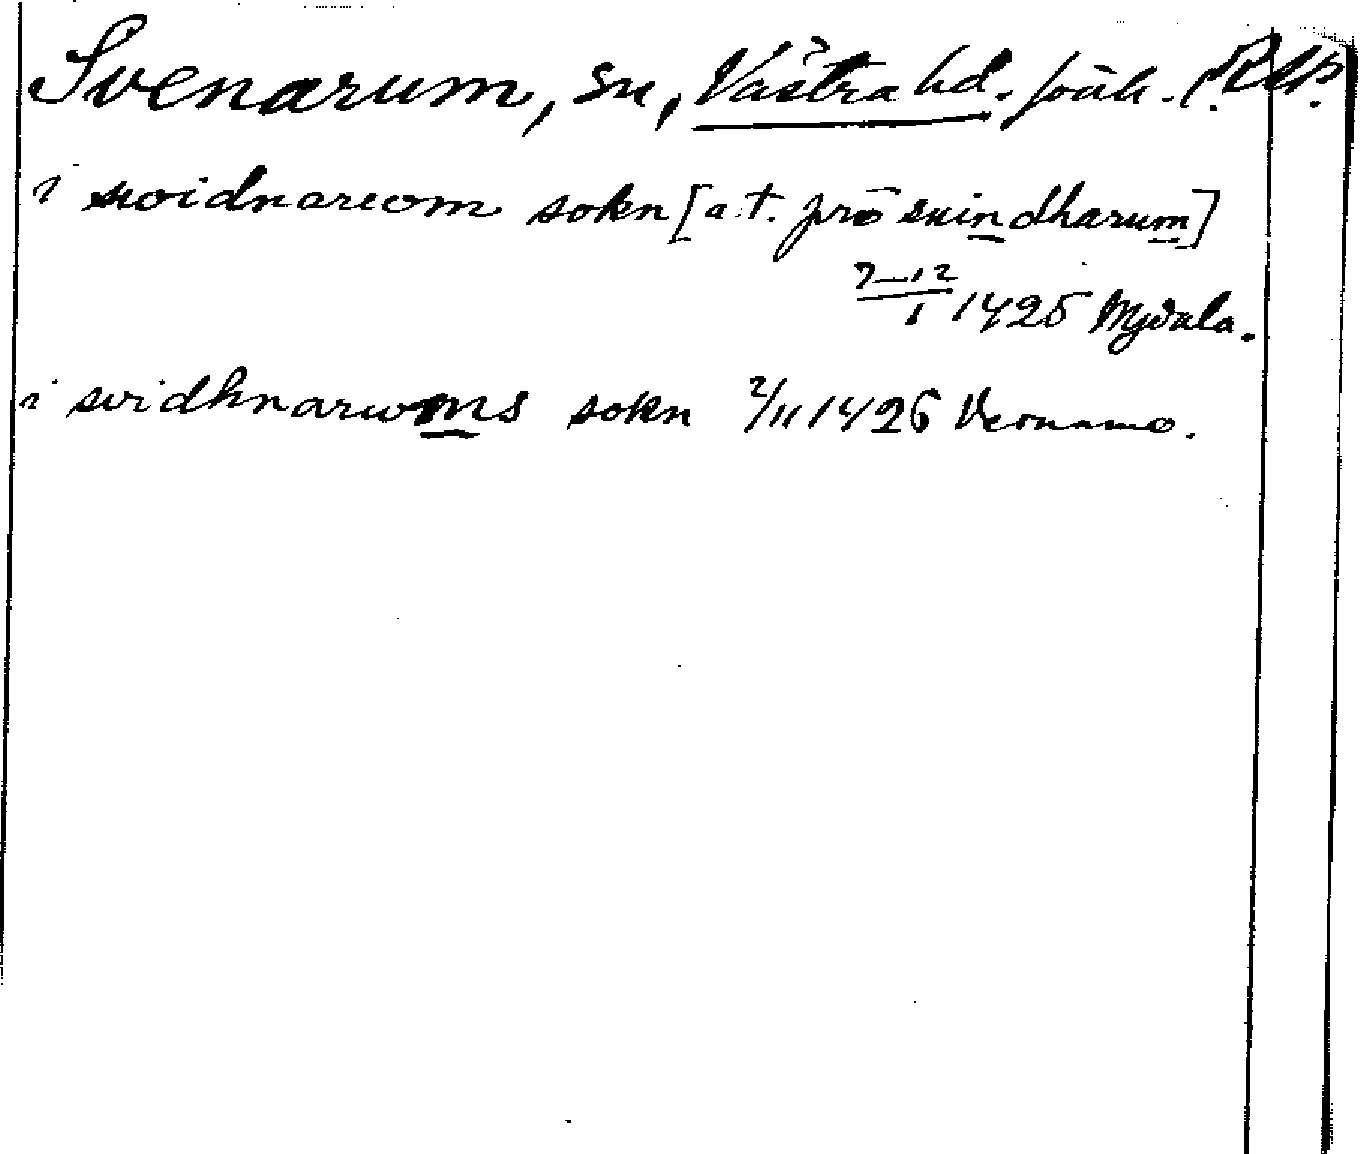 Svenarum, sn, Västra hd. Jönk. (. Rsp.
i swidnarwm sokn [a.t. prō suindharum]
7–12/1 1425 Nydala.
i svidhnarwms sokn 2/11 1426 Vernamo.